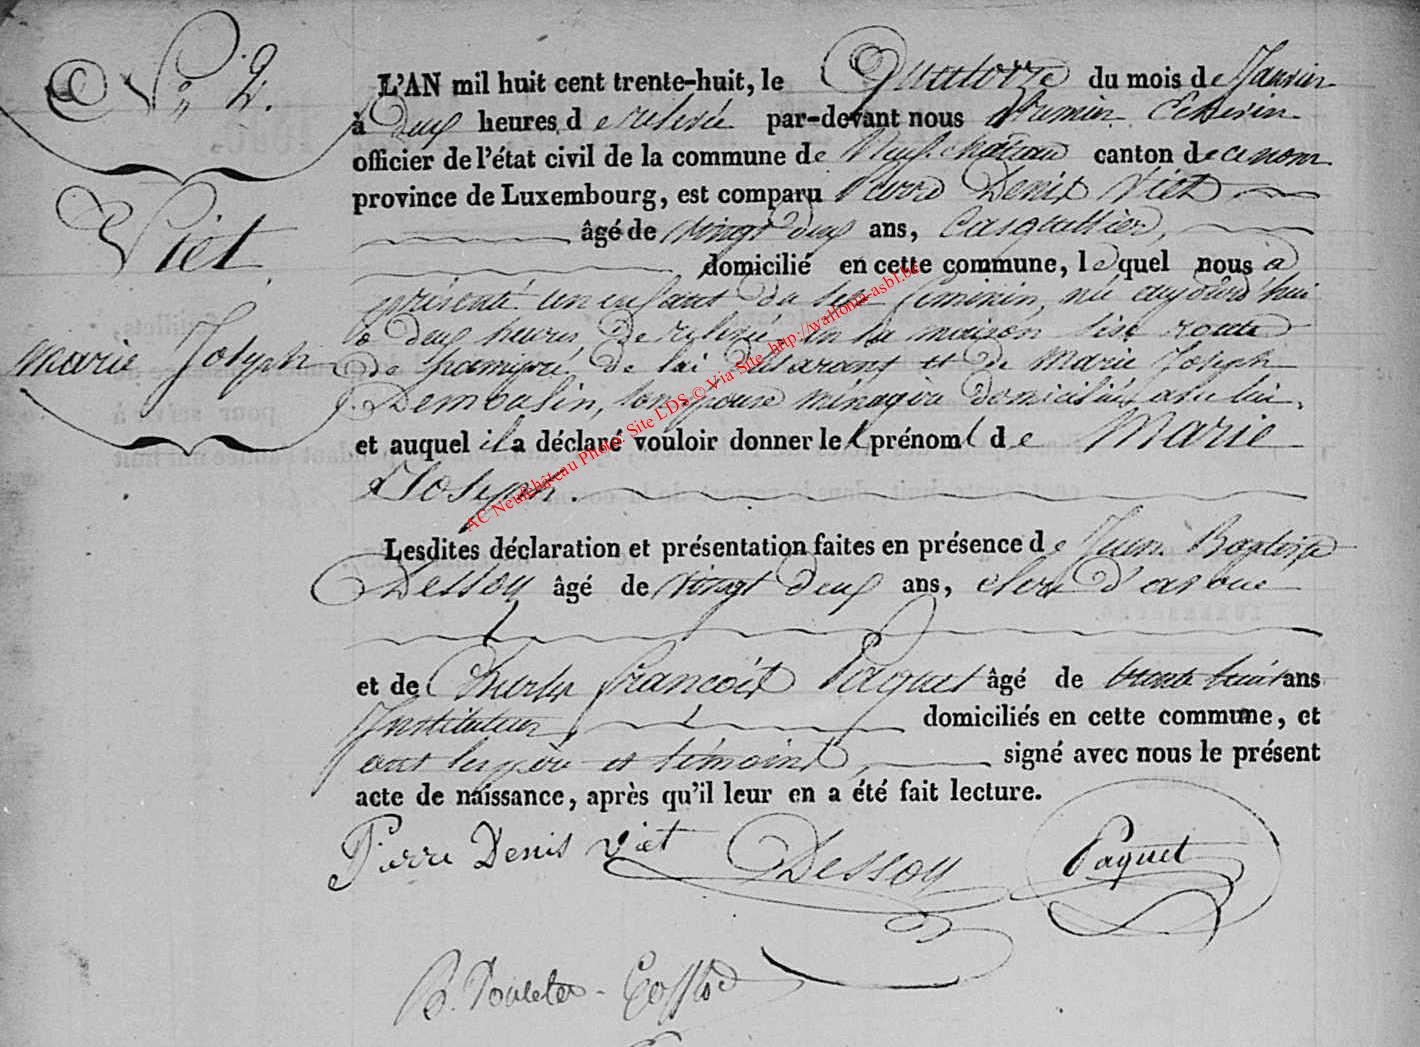 N° 2.
Viet
Marie Joseph
L'AN mil huit cent trente-huit, le Quatorze du mois de Janvier
à deux heures de relevée par-devant nous Premier Echevin
officier de l'état civil de la commune de Neufchateau canton de ce nom
province de Luxembourg, est comparu Pierre Denis Viet
âgé de vingt deux ans, Casquettier,
domicilié en cette commune, lequel nous a
présenté un enfant du sexe féminin, née aujourd'hui
à deux heures de relevée, en sa maison sise route
de de lui déclarant et de Marie Joseph
son épouse ménagère domiciliée avec lui,
et auquel il a déclaré vouloir donner les prénoms de Marie
Joseph.
Lesdites déclaration et présentation faites en présence de Jean Baptiste
Dessoy âgé de vingt deux ans,
et de Charles françois Paquet âgé de trente huit ans
Instituteur, domiciliés en cette commune, et
ont les père et témoins, signé avec nous le présent
acte de naissance, après qu'il leur en a été fait lecture.
Pierre Denis Viet Dessoy Paquet
AC Neufchâteau Photo: Site LDS © Via Site http://wallonia-asbl.be